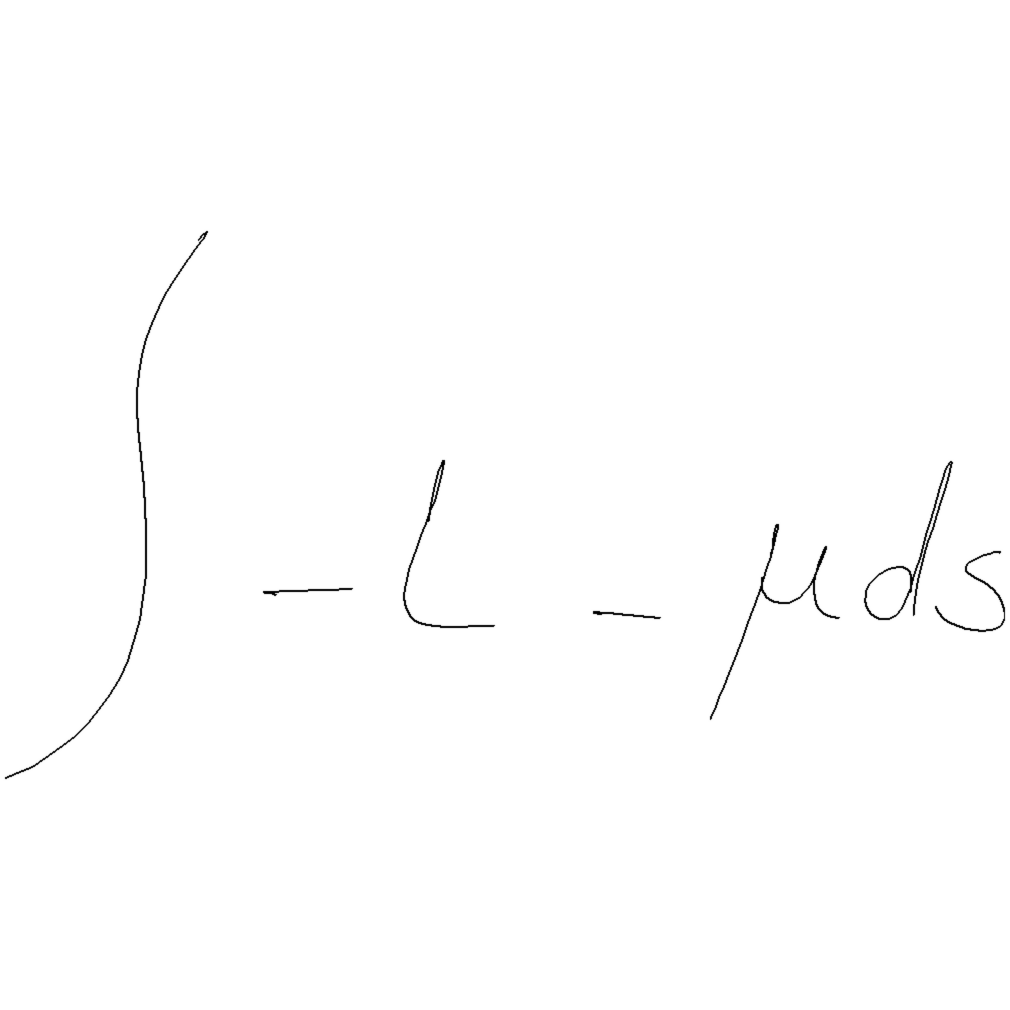 ∫ - L - μds